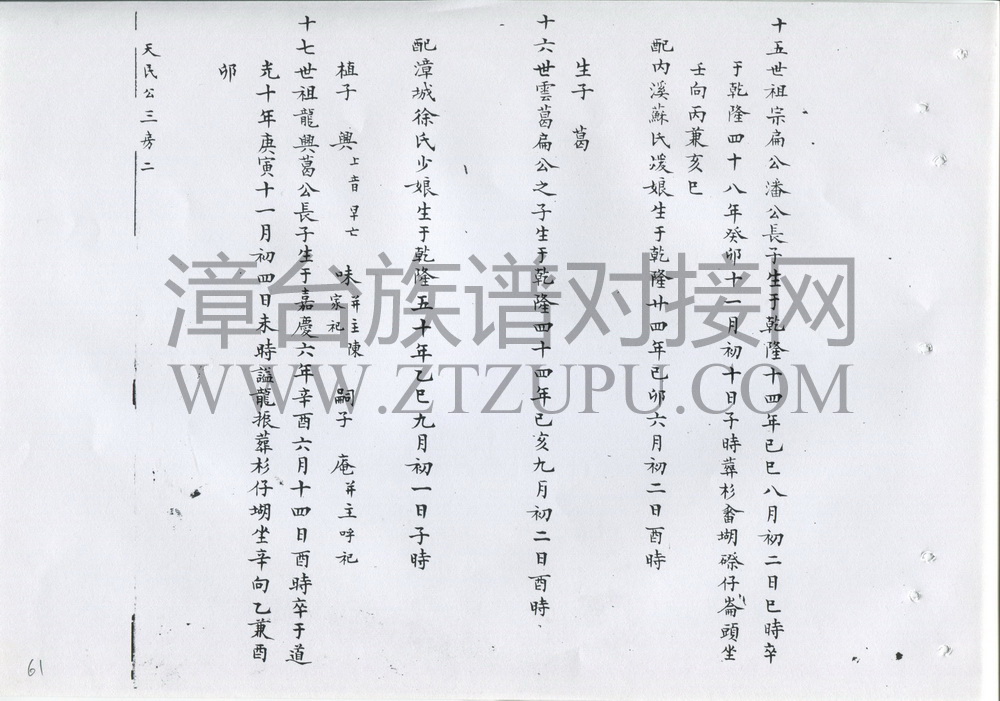 十五世祖宗扁公潘公長子生于乾隆十四年己巳八月初二日巳時卒
于乾隆四十八年癸卯十一月初十日子時葬杉畨堋磜仔崙頭坐
壬向丙兼亥巳
配內溪蘇氏湲娘生于乾隆廿四年己卯六月初二日酉時
生子 葛
十六世雲葛扁公之子生于乾隆四十四年己亥九月初二日酉時
配漳城徐氏少娘生于乾隆五十年乙巳九月初一日子時
植子 興 上音早亡 味 並主陳家祀 嗣子 庵 並主呼祀
十七世祖龍興葛公長子生于嘉慶六年辛酉六月十四日酉時卒于道
光十年庚寅十一月初四日未時謚龍振葬杉仔堋坐辛向乙兼酉
卯
天民公三房二
61
漳台族谱对接网
WWW.ZTZUPU.COM